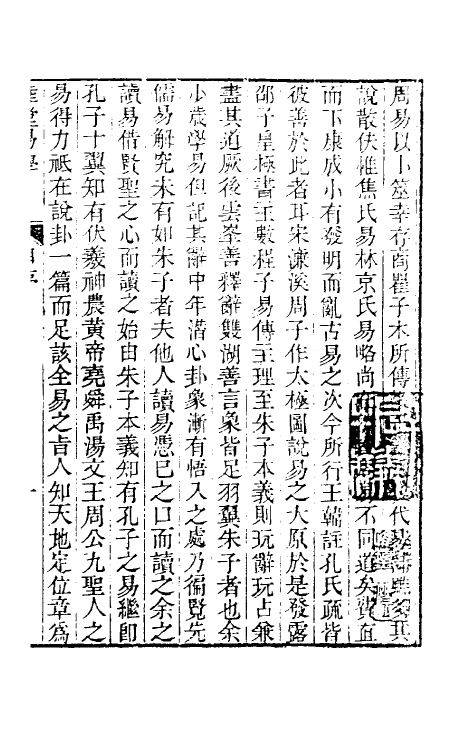 周易以卜筮幸存商瞿子木所傳代其
說散佚惟焦氏易林京氏易略尚不同道矣費直
而下康成小有發明而亂古易之次今所行王韓註孔氏疏皆
彼善於此者耳宋濂溪周子作太極圖說易之大原於是發露
邵子皇極書主數程子易傳主理至朱子本義則玩辭玩占兼
盡其道厥後雲峯善釋辭雙湖善言象皆足羽翼朱子者也余
少歲學易但記其辭中年潛心卦象漸有悟入之處乃徧覽先
儒易解究未有如朱子者夫他人讀易憑已之口而讀之余之
讀易借賢聖之心而讀之始由朱子本義知有孔子之易繼即
孔子十翼知有伏羲神農黃帝堯舜禹湯文王周公九聖人之
易得力祇在說卦一篇而足該全易之旨人知天地定位章爲
堂易學
自序
一